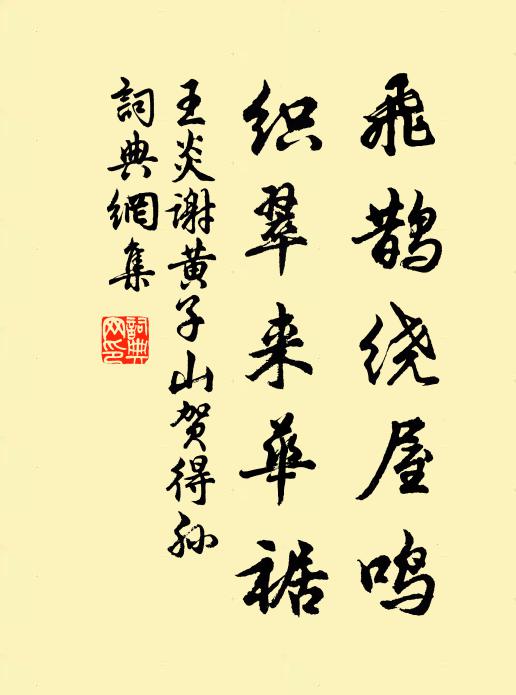 飛鹊绕屋鸣
织翠来華裾
王炎谢黄子山贺得孙
詞典網集
詞典网印